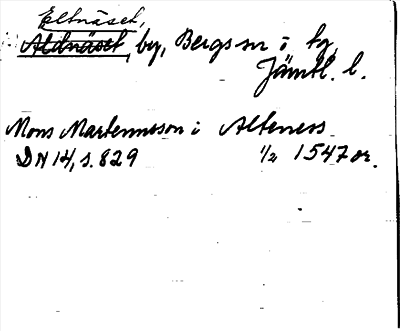 Eltnäset,
Altnäset, by, Bergs sn i tg,
Jämtl. l.
Mons Martennsson i Alteness
DN 14, s. 829 1/2 1547 or.